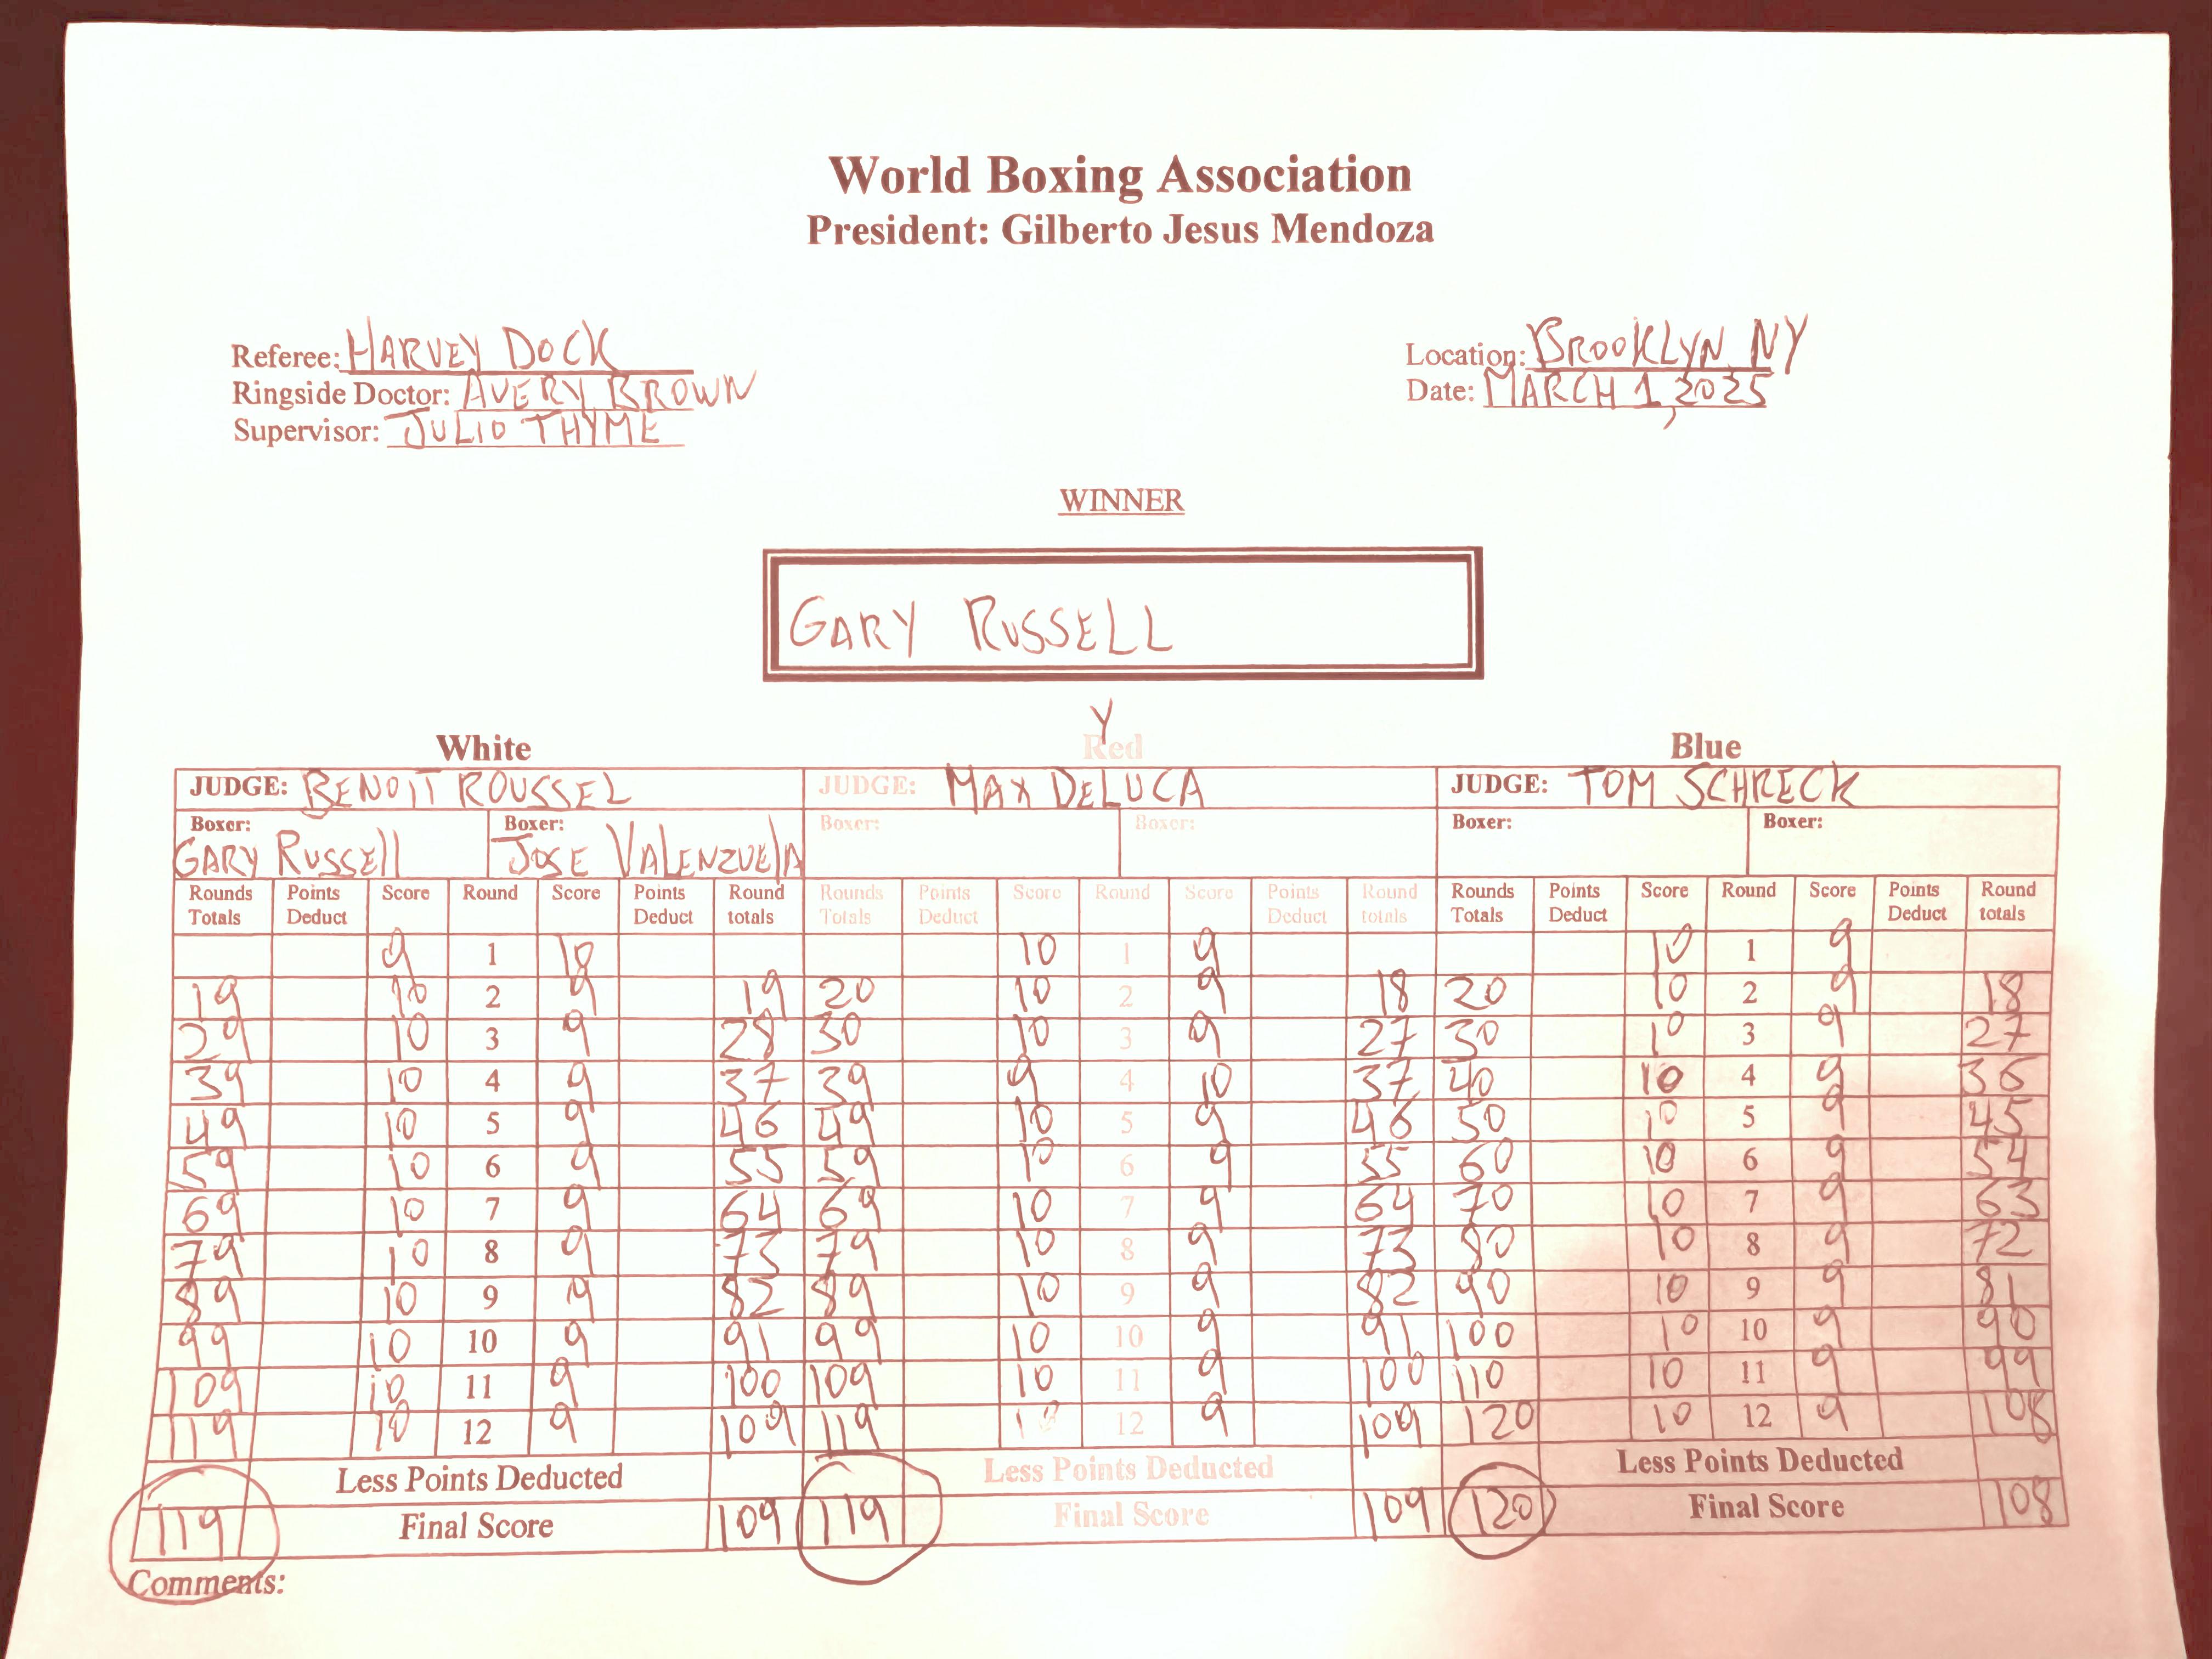 World Boxing Association
President: Gilberto Jesus Mendoza
Referee: HARVEY DOCK
Ringside Doctor: AVERY BROWN
Supervisor: JULIO THYME
Location: BROOKLYN NY
Date: MARCH 1, 2025
WINNER
GARY RUSSELL
Y
White Red Blue
JUDGE: BENOIT ROUSSEL JUDGE: MAX DELUCA JUDGE: TOM SCHRECK
Boxer: Boxer: Boxer: Boxer: Boxer: Boxer:
GARY RUSSEll JOSE VALENZUELA
Rounds Totals Points Deduct Score Round Score Points Deduct Round totals Rounds Totals Points Deduct Score Round Score Points Deduct Round totals Rounds Totals Points Deduct Score Round Score Points Deduct Round totals
9 1 10 10 1 9 10 1 9
19 10 2 9 19 20 10 2 9 18 20 10 2 9 18
29 10 3 9 28 30 10 3 9 27 30 10 3 9 27
39 10 4 9 37 39 9 4 10 37 40 10 4 9 36
49 10 5 9 46 49 10 5 9 46 50 10 5 9 45
59 10 6 9 55 59 10 6 9 55 60 10 6 9 54
69 10 7 9 64 69 10 7 9 64 70 10 7 9 63
79 10 8 9 73 79 10 8 9 73 80 10 8 9 72
89 10 9 9 82 89 10 9 9 82 90 10 9 9 81
99 10 10 9 91 99 10 10 9 91 100 10 10 9 90
109 10 11 9 100 109 10 11 9 100 110 10 11 9 99
119 10 12 9 109 119 10 12 9 109 120 10 12 9 108
Less Points Deducted Less Points Deducted Less Points Deducted
119 Final Score 109 119 Final Score 109 120 Final Score 108
Comments: